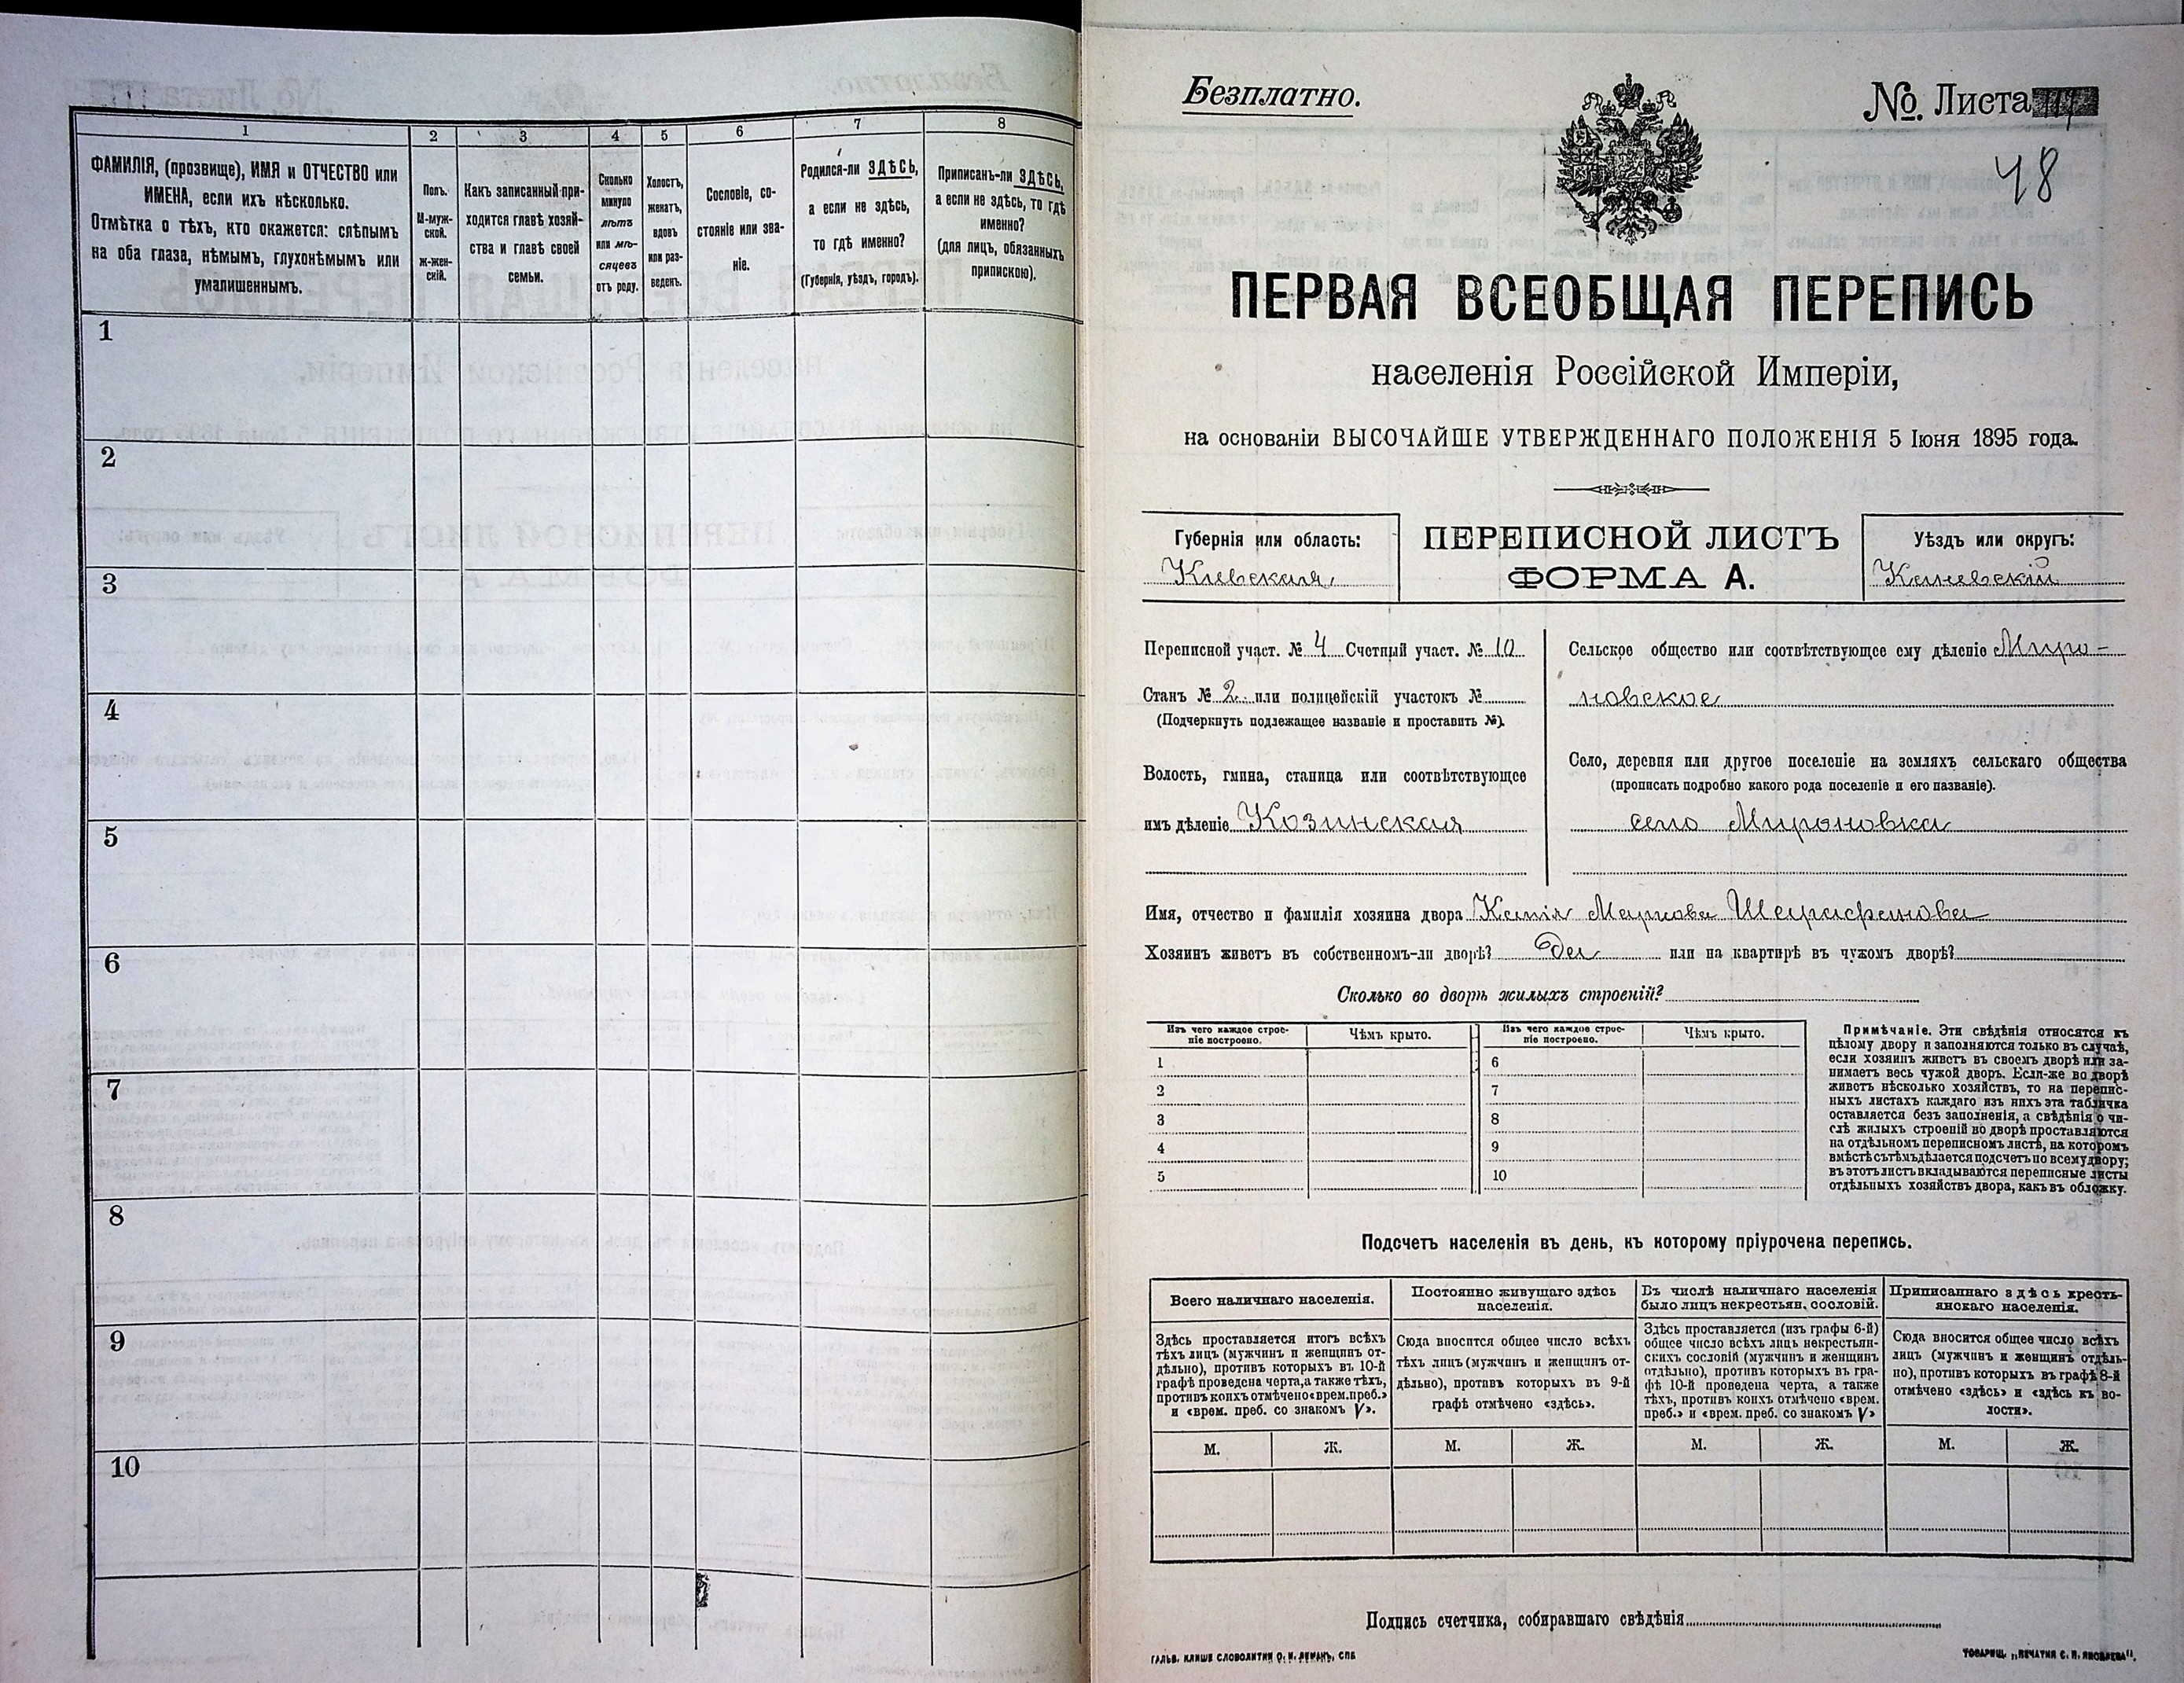 1
2
3
4
5
6
7
8
ФАМИЛІЯ, (прозвище), ИМЯ и ОТЧЕСТВО или
ИМЕНА, если ихъ нѣсколько.
Отмѣтка о тѣхъ, кто окажется: слѣпымъ
на оба глаза, нѣмымъ, глухонѣмымъ или
умалишеннымъ.
Полъ.
М-муж-
ской.
Ж-жен-
скій.
Какъ записанный при-
ходится главѣ хозяй-
ства и главѣ своей
семьи.
Сколько
минуло
лѣтъ
или мѣ-
сяцевъ
отъ роду.
Холостъ,
женатъ,
вдовъ
или раз-
веденъ.
Сословіе, со-
стояніе или зва-
ніе.
Родился-ли ЗДѢСЬ,
а если не здѣсь,
то гдѣ именно?
(Губернія, уѣздъ, городъ).
Приписанъ-ли ЗДѢСЬ,
а если не здѣсь, то гдѣ
именно?
(для лицъ, обязанныхъ
припискою).
1
2
3
4
5
6
7
8
9
10
Безплатно.
№. Листа
48
ПЕРВАЯ ВСЕОБЩАЯ ПЕРЕПИСЬ
населенія Россійской Имперіи,
на основаніи ВЫСОЧАЙШЕ УТВЕРЖДЕННАГО ПОЛОЖЕНІЯ 5 Іюня 1895 года.
Губернія или область:
Кіевская
ПЕРЕПИСНОЙ ЛИСТЪ
ФОРМА А.
Уѣздъ или округъ:
Каневскій
Переписной участ. № 4 Счетный участ. № 10
Станъ № 2 или полицейскій участокъ №
(Подчеркнуть подлежащее названіе и проставить №).
Волость, гмина, станица или соотвѣтствующее
имъ дѣленіе Козинская
Сельское общество или соотвѣтствующее ему дѣленіе Миро-
новское
Село, деревня или другое поселеніе на земляхъ сельскаго общества
(прописать подробно какого рода поселеніе и его названіе).
село Мироновка
Имя, отчество и фамилія хозяина двора Маркова
Хозяинъ живетъ въ собственномъ-ли дворѣ? да или на квартирѣ въ чужомъ дворѣ?
Сколько во дворѣ жилыхъ строеній?
Изъ чего каждое строе-
ніе построено.
Чѣмъ крыто.
Изъ чего каждое строе-
ніе построено.
Чѣмъ крыто.
1
2
3
4
5
6
7
8
9
10
Примѣчаніе. Эти свѣдѣнія относятся къ
цѣлому двору и заполняются только въ случаѣ,
если хозяинъ живетъ въ своемъ дворѣ или за-
нимаетъ весь чужой дворъ. Если-же во дворѣ
живетъ нѣсколько хозяйствъ, то на перепис-
ныхъ листахъ каждаго изъ нихъ эта табличка
оставляется безъ заполненія, а свѣдѣнія о чи-
слѣ жилыхъ строеній во дворѣ проставляются
на отдѣльномъ переписномъ листѣ, на которомъ
вмѣстѣ съ тѣмъ дѣлается подсчетъ по всему двору;
въ этотъ листъ вкладываются переписные листы
отдѣльныхъ хозяйствъ двора, какъ въ обложку.
Подсчетъ населенія въ день, къ которому пріурочена перепись.
Всего наличнаго населенія.
Постоянно живущаго здѣсь
населенія.
Въ числѣ наличнаго населенія
было лицъ некрестьян. сословій.
Приписаннаго здѣсь кресть-
янскаго населенія.
Здѣсь проставляется итогъ всѣхъ
тѣхъ лицъ (мужчинъ и женщинъ от-
дѣльно), противъ которыхъ въ 10-й
графѣ проведена черта, а также тѣхъ,
противъ коихъ отмѣчено «врем. преб.»
и «врем. преб. со знакомъ V».
Сюда вносится общее число всѣхъ
тѣхъ лицъ (мужчинъ и женщинъ от-
дѣльно), противъ которыхъ въ 9-й
графѣ отмѣчено «здѣсь».
Здѣсь проставляется (изъ графы 6-й)
общее число всѣхъ лицъ некрестьян-
скихъ сословій (мужчинъ и женщинъ
отдѣльно), противъ которыхъ въ гра-
фѣ 10-й проведена черта, а также
тѣхъ, противъ коихъ отмѣчено «врем.
преб.» и «врем. преб. со знакомъ V»
Сюда вносится общее число всѣхъ
лицъ (мужчинъ и женщинъ отдѣль-
но), противъ которыхъ въ графѣ 8-й
отмѣчено «здѣсь» и «здѣсь къ во-
лости».
М. Ж. М. Ж. М. Ж. М. Ж.
Подпись счетчика, собиравшаго свѣдѣнія
ГАЛЬВ. КЛИШЕ СЛОВОЛИТНИ О. И. ЛЕМАНЪ, СПБ
ТОВАРИЩ. „ПЕЧАТНЯ С. П. ЯКОВЛЕВА“.